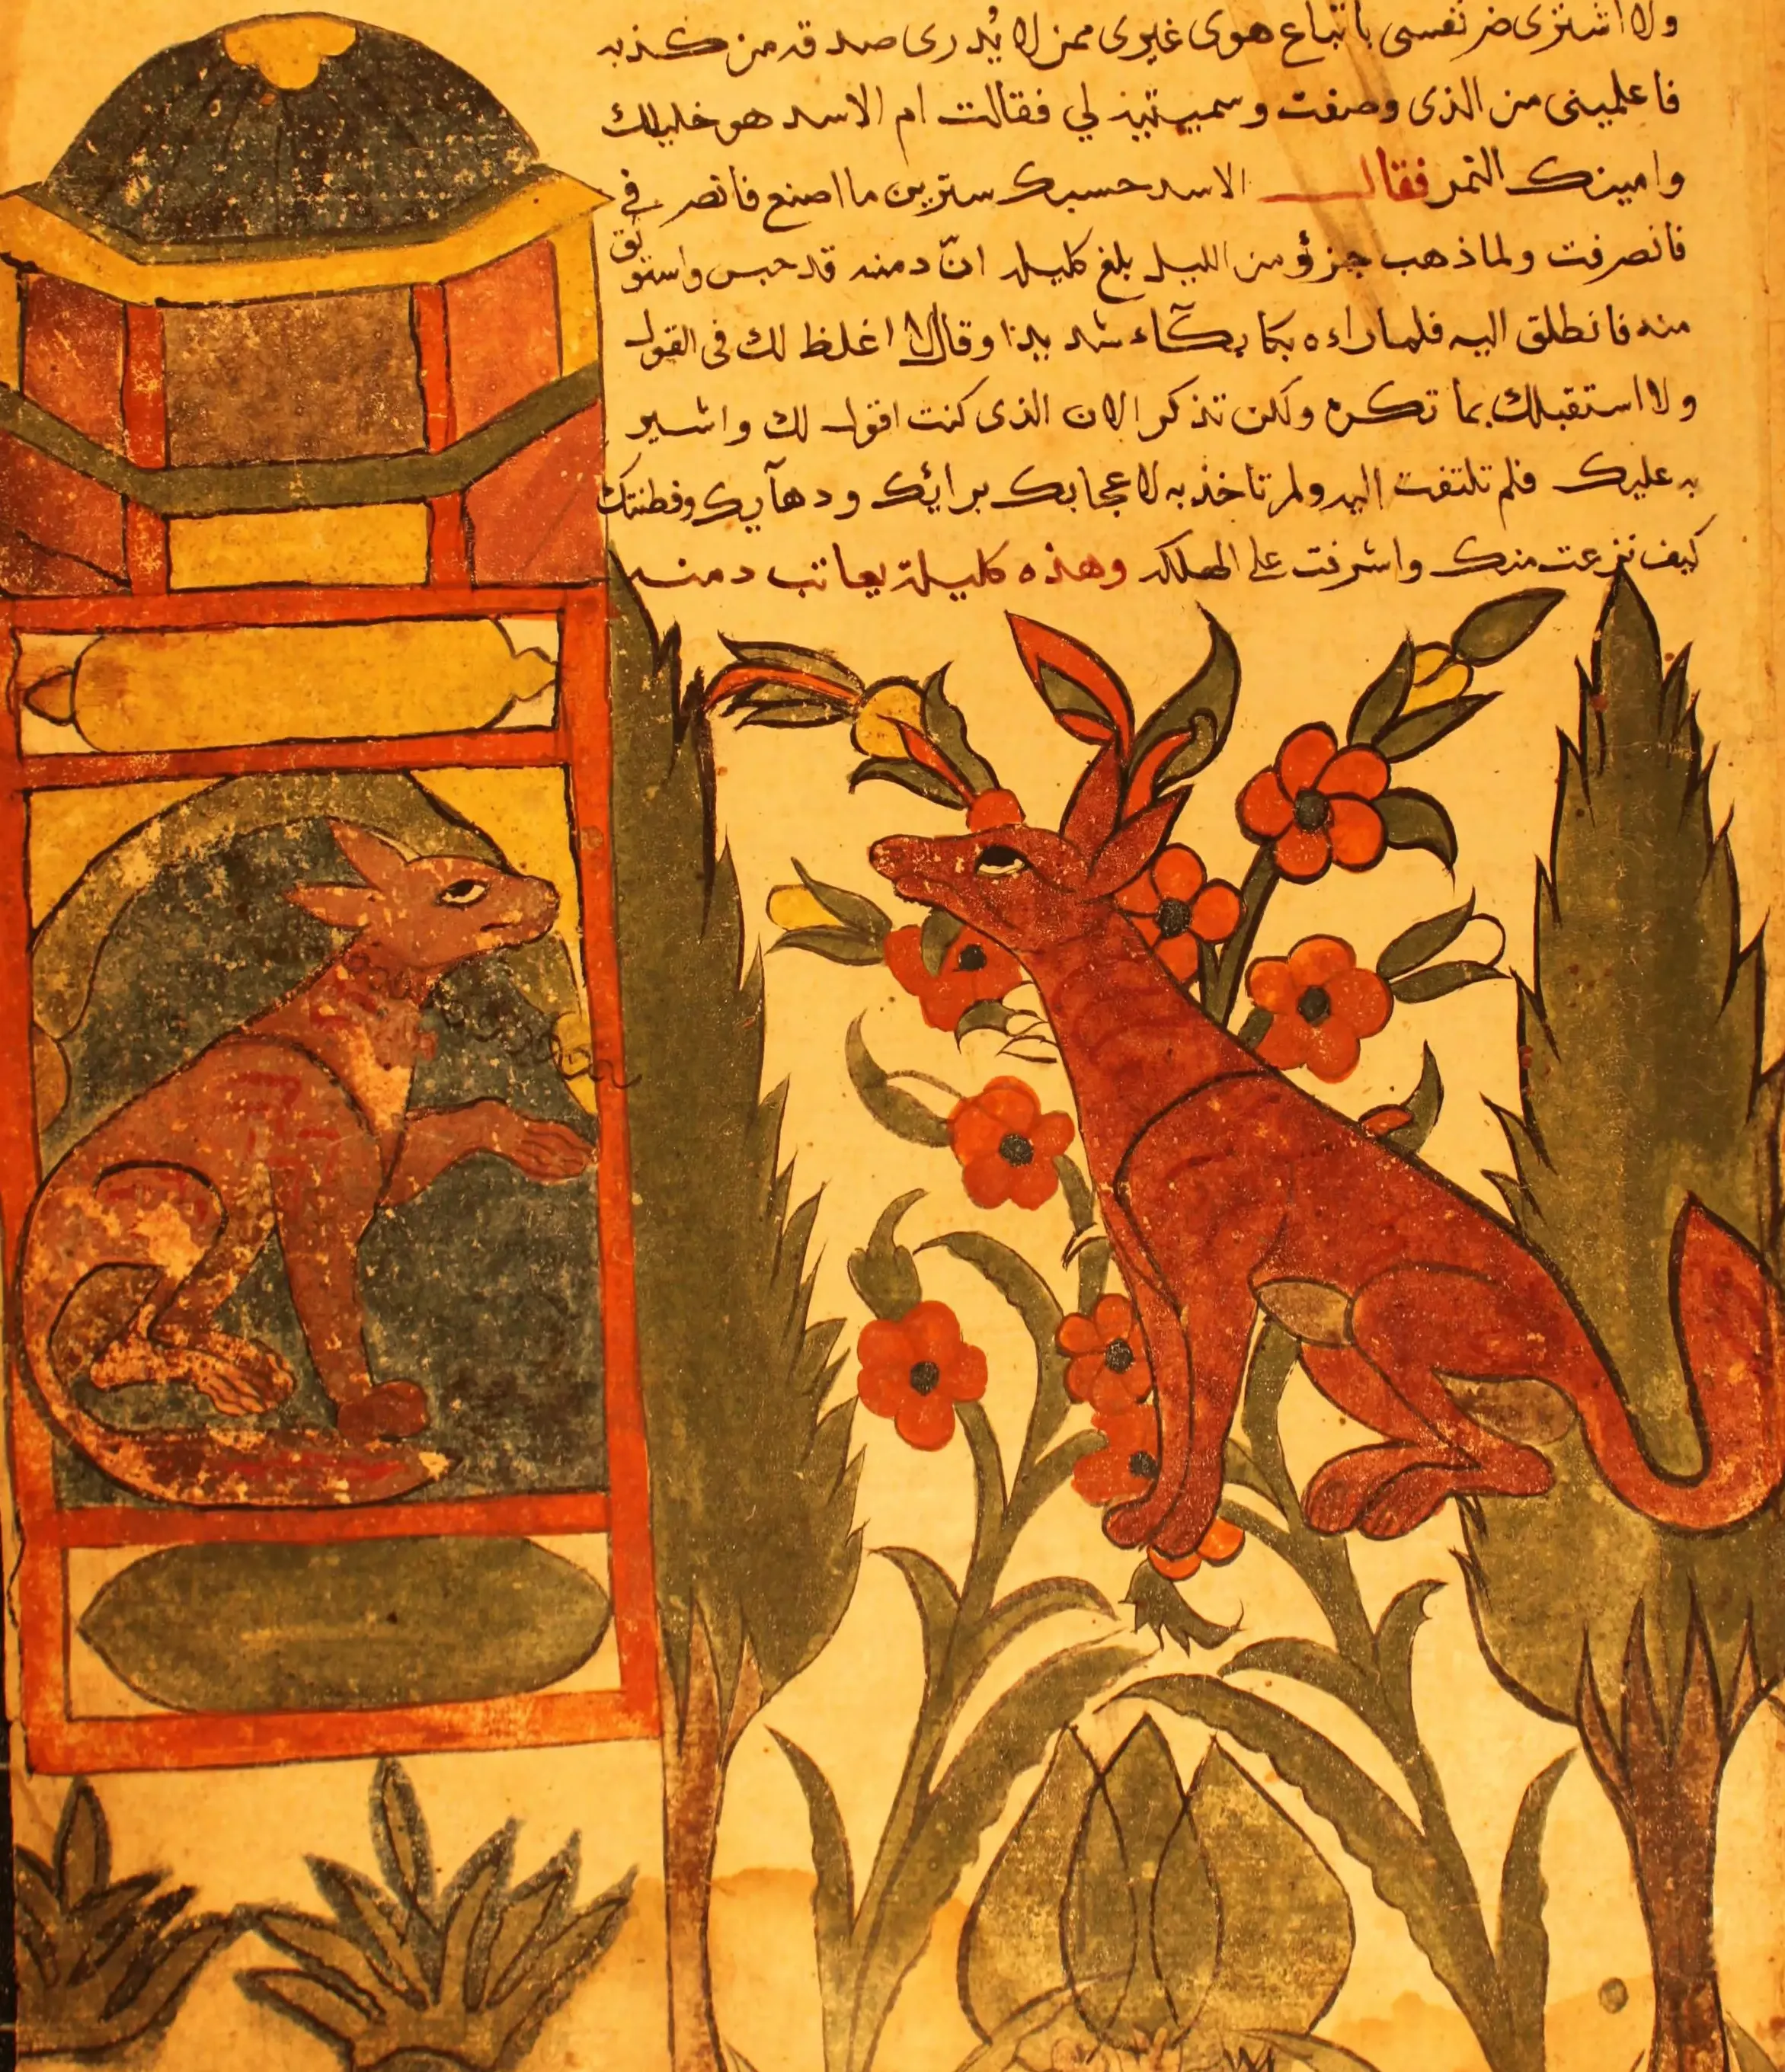 ولا اشترى ضر نفسى باتباع هوى غيرى ممن لا يُدرى صدقه من كذبه
فاعلمينى من الذى وصفت وسميتيه لي فقالت ام الاسد هو خليلك
وامينك النمر فقال الاسد حسبك سترين ما اصنع فانصرفي
فانصرفت ولما ذهب جزؤ من الليل بلغ كليله انّ دمنه قد حبس واستوثق
منه فانطلق اليه فلما راءه بكا بكآء شديدا وقال لا اغلظ لك فى القول
ولا استقبلك بما تكره ولكن تذكر الان الذى كنت اقول لك واشير
به عليك فلم تلتفت اليه ولم تاخذ به لاعجابك برائك ودهآيك وفطنتك
كيف نزعت منك واشرفت على الهلكه وهذه كليلة يعاتب دمنه